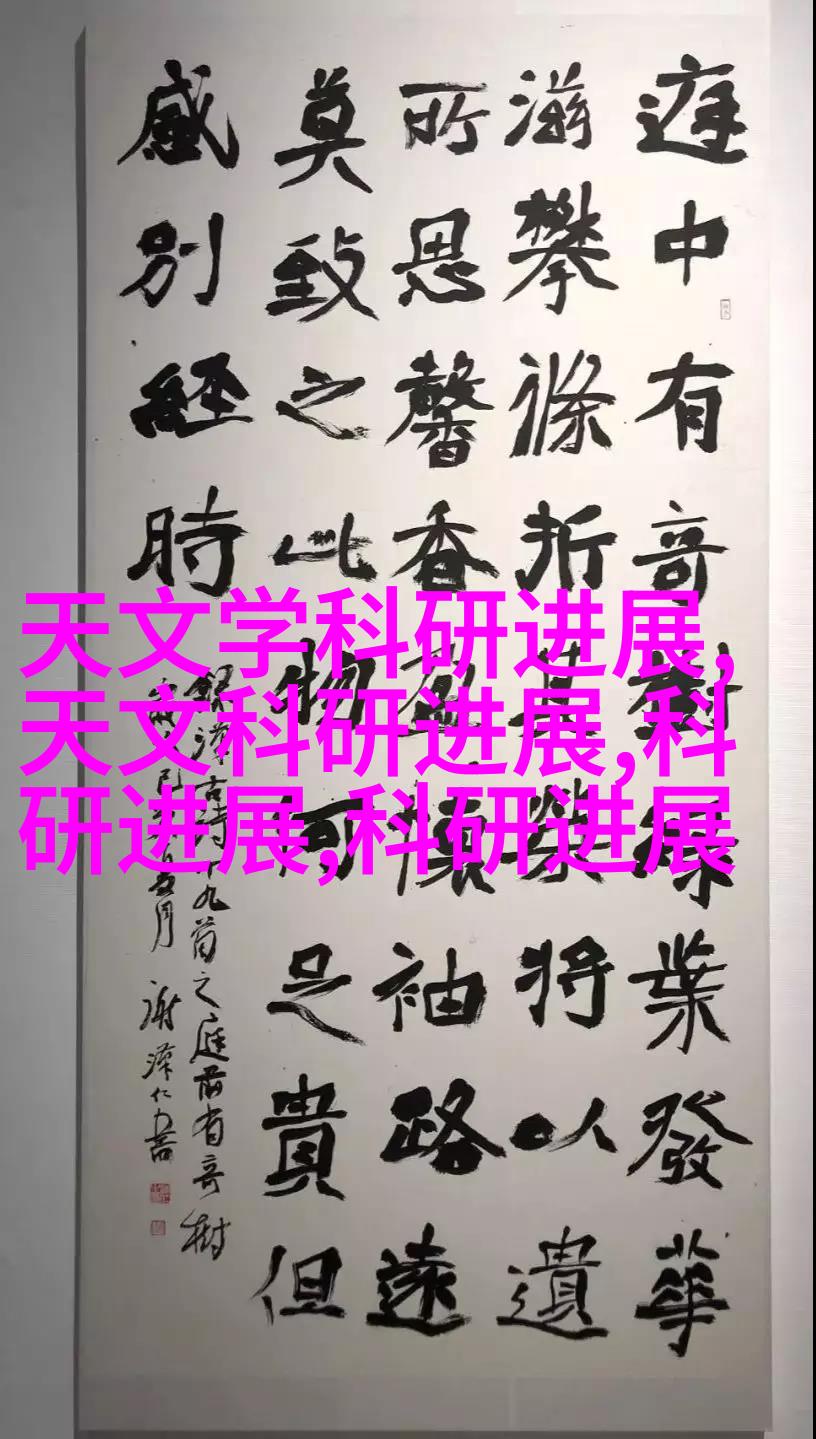 庭中有奇樹綠葉發華
滋攀條折其榮將以遺
所思馨香盈懷袖路遠
莫致之此物何足貴但
感別經時
錄漢古詩十九首之庭前有奇樹
月 謝澤仁書
天文学科研进展,
天文科研进展,科
研进展,科研进展